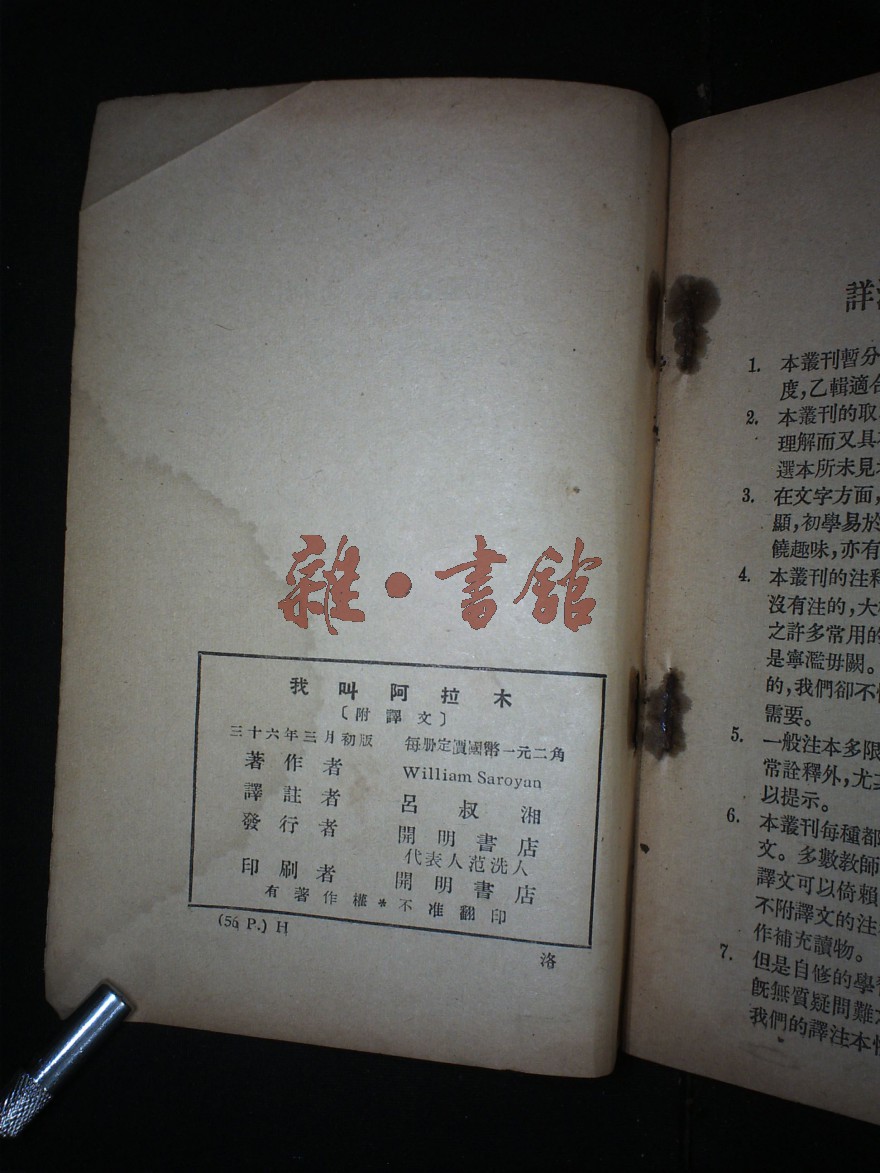 雜·書館
我叫阿拉木
〔附譯文〕
三十六年三月初版 每册定價國幣一元二角
著作者 William Saroyan
譯註者 呂叔湘
發行者 開明書店
代表人范洗人
印刷者 開明書店
有著作權*不准翻印
(56 P.) H
洛
詳
1. 本叢刊暫分
度,乙輯適合
2. 本叢刊的取
理解而又具
選本所未見
3. 在文字方面,
顯,初學易於
饒趣味,亦有
4. 本叢刊的注釋
沒有注的,大
之許多常用的
是寧濫毋闕。
的,我們卻不
需要。
5. 一般注本多限
常詮釋外,尤
以提示。
6. 本叢刊每種都
文。多數教師
譯文可以倚賴
不附譯文的注
作補充讀物。
7. 但是自修的學
旣無質疑問難
我們的譯注本